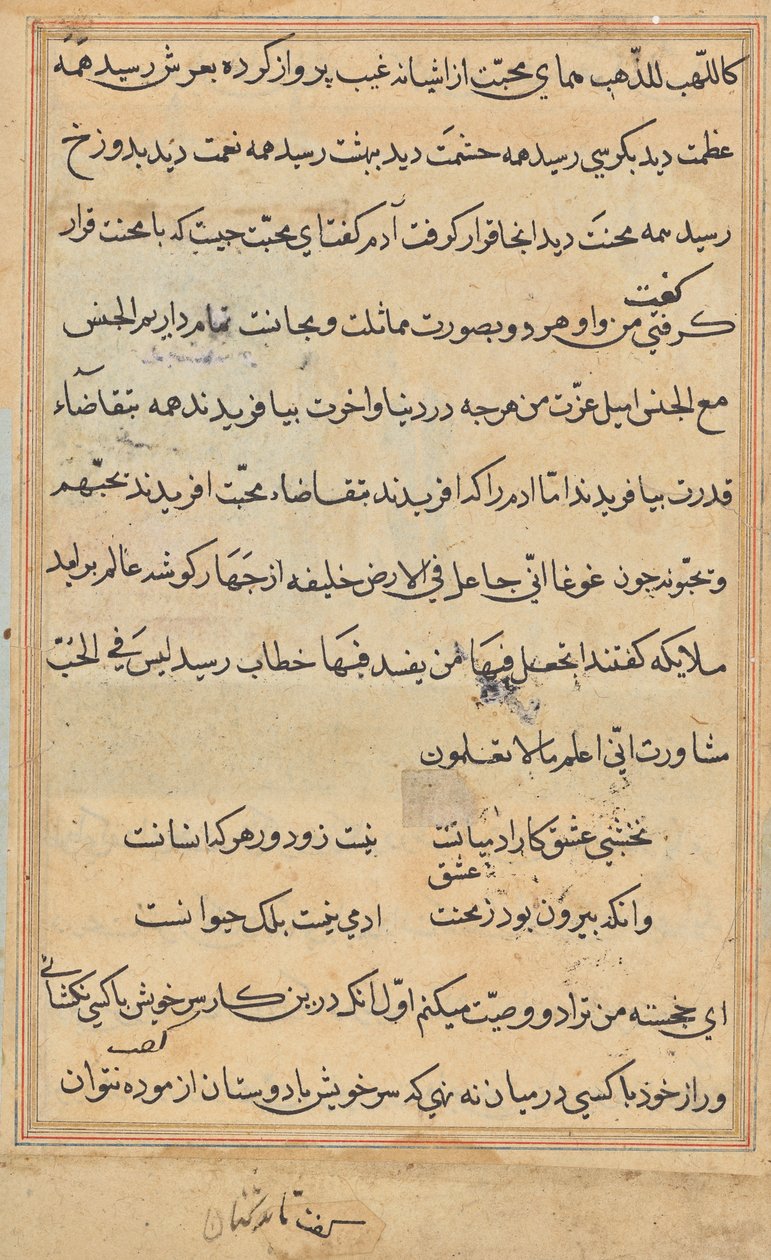 كاللّهب للذّهب همای محبّت از اشیانه غیب پرواز کرده بعرش رسید همَه
عظمت دید بکرسی رسید همه حشمَت دید ببهشت رسید همه نعمت دید بدوزخ
رسید همه محنتَ دید انجا قرار کرفت آدم کفت ای محبّت چیست که با محنت قرار
کفت
کرفتی من و او هر دو بصورت مماثلت و مجانست تمام داریم الجنس
مع الجنس امیل عزّت من هرجه در دنیا و اخرت بیافریدند همه بتقاضآء
قدرت بیافریدند امّا ادم را که افریدند بتقاضاء محبّت افریدند یحبّهم
و یحبّونه جون غوغا انّی جاعل فی الارض خلیفه از جَهَار کوشه عالم برامد
ملایکه کفتند اتجعل فیهَا من یفسد فیهَا خطاب رسید لیسَ فی الحُبّ
مشاورت انّی اعلم مالا تعلمون
نخشبی عشق کار ادمیانست نیست زو دور هر که انسانست
عشق
وانکه بیرون بود ز محنت ادمی نیست بلک حیوانست
ای خجسته من ترا دو وصیّت میکنم اوّل انکه درین کار سر خویش با کسی نکشائی
و راز خود با کسی در میان نه نهی که سر خویش با دوستان ازموده نتوان
کفت تا به دشمنان